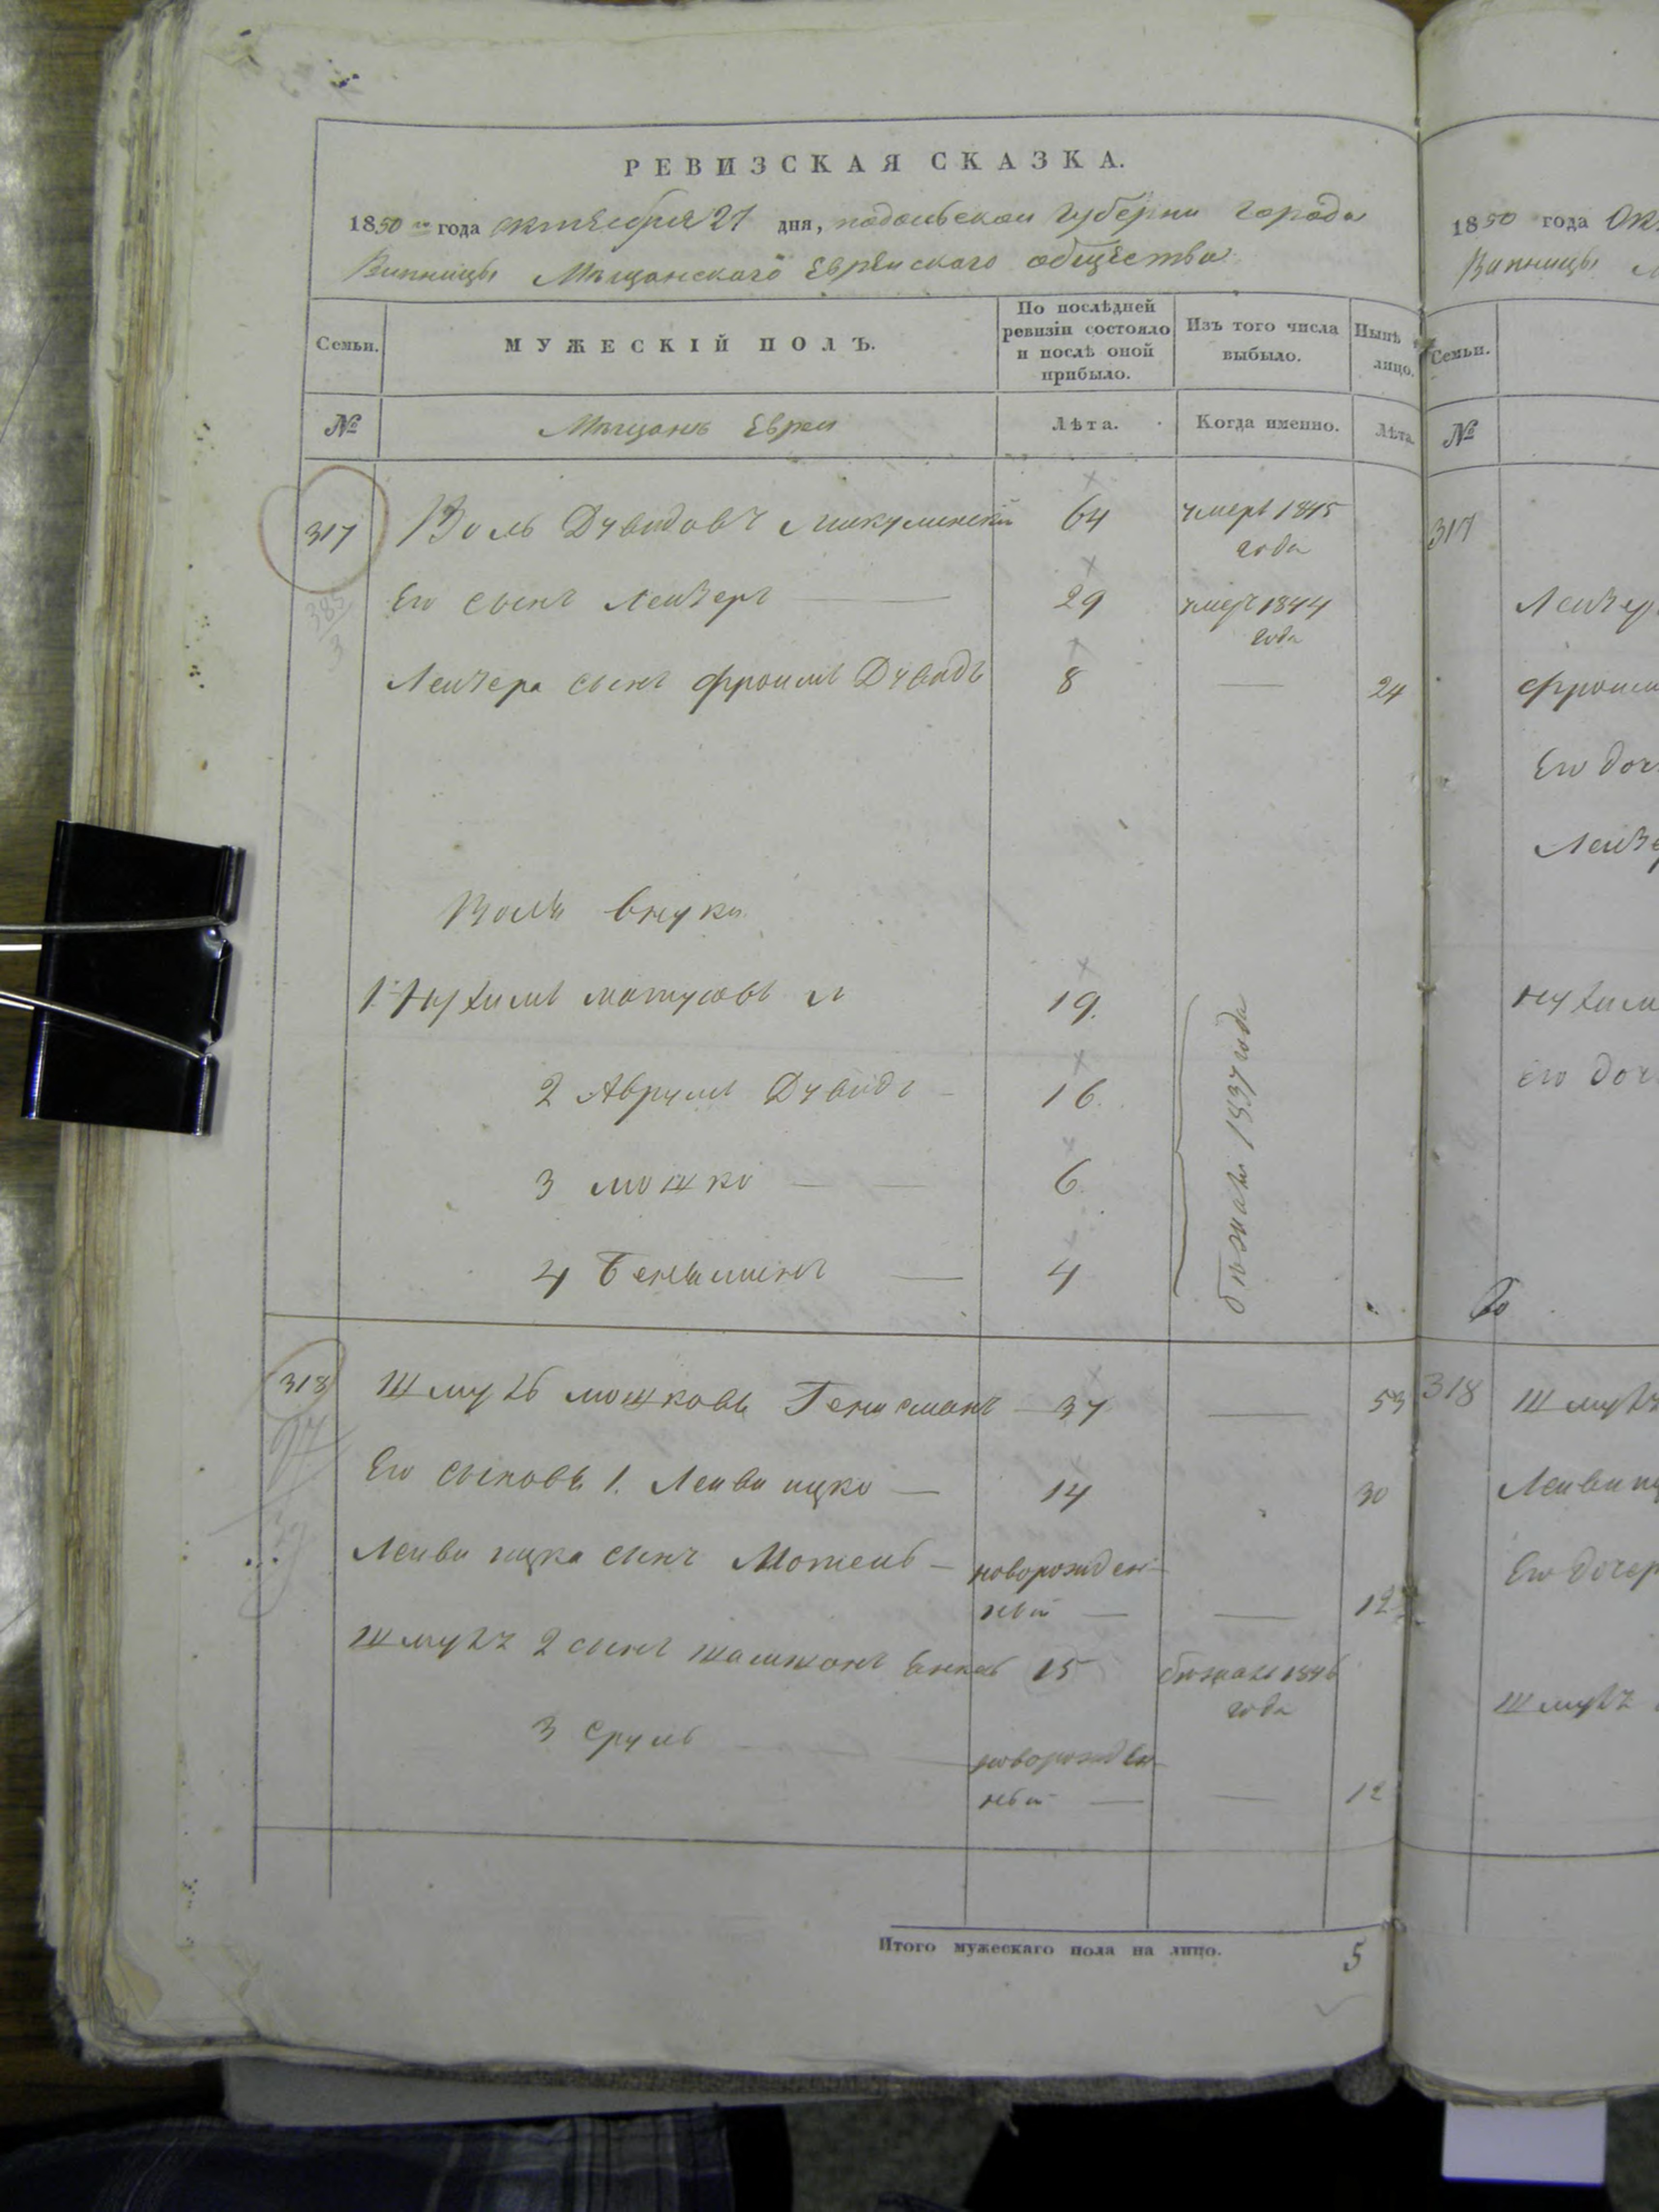 РЕВИЗСКАЯ СКАЗКА.
1850 го года октября 21 дня, подольской губерни города
Винницы Мѣщанскаго Еврейскаго общества
Семьи.
МУЖЕСКІЙ ПОЛЪ.
По послѣдней ревизіи состояло и послѣ оной прибыло.
Изъ того числа выбыло.
Нынѣ на лицо.
№ Мѣщанъ Евреи Лѣта. Когда именно. Лѣта.
317 Воль Дувидовъ Микулинский 64 умеръ 1845
года
Его сынъ Лейзеръ 29 умеръ 1844
года
385
3
Лейзера сынъ Фроимъ Дувидъ 8 — 24
Воля внуки
1. Нухимъ Матусовъ М 19.
2 Аврумъ Дувидъ 16.
3 Мошко 6.
4 Бениаминъ 4
бѣжали 1837 года
318 Шмуль Мошковъ 37 — 53
Его сыновья 1. Лейви ицко 14 30
Лейви ицка сынъ Мотель новорожден-
ный — 12
Шмуля 2 сынъ Янкель 15 бѣжалъ 1846
года
3 Сруль новорожден-
ный — 12
Итого мужескаго пола на лицо. 5
1850 года Ок
Винницы
Семьи.
№
317
Лейзер
Фроим
Его доч
Лейзе
Нухим
Его доч
318 Шмуль
Лейви иц
Его дочер
Шмуля